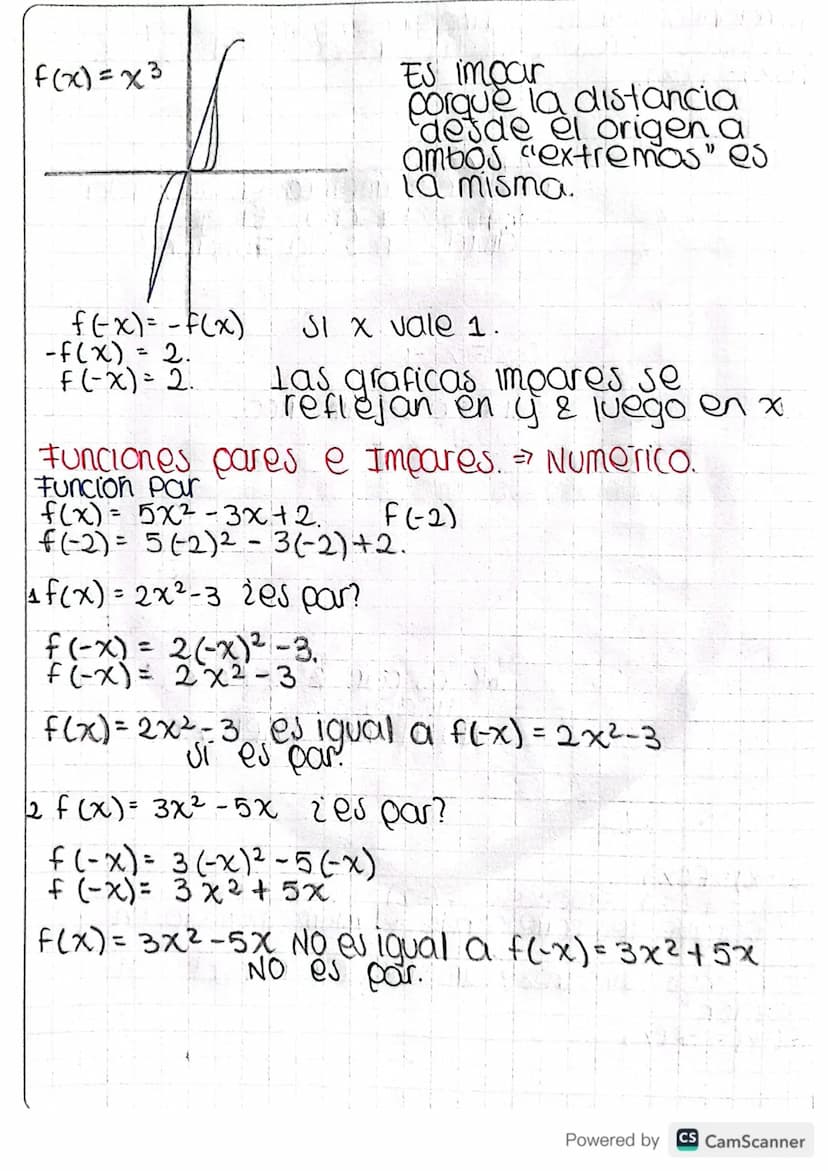 f(x) = x³
Es impar
porque la distancia
desde el origen a
ambos "extremos" es
la misma.
f(-x) = -f(x)    si x vale 1.
-f(x) = 2.
f(-x) = 2.
Las graficas impares se
reflejan en y & luego en x
Funciones pares e Impares. ⇒ Numerico.
Función Par
f(x) = 5x² - 3x + 2.    f(-2)
f(-2) = 5(-2)² - 3(-2) + 2.
1 f(x) = 2x² - 3 ¿es par?
f(-x) = 2(-x)² - 3.
f(-x) = 2x² - 3
f(x) = 2x² - 3 es igual a f(-x) = 2x² - 3
Si es par.
2 f(x) = 3x² - 5x ¿es par?
f(-x) = 3(-x)² - 5(-x)
f(-x) = 3x² + 5x
f(x) = 3x² - 5x NO es igual a f(-x) = 3x² + 5x
NO es par.
Powered by CS CamScanner